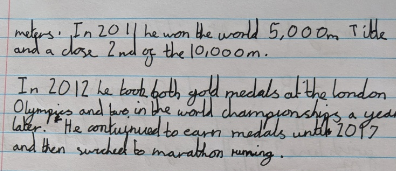 meters. In 2011 he won the world 5,000m Title
and a close 2nd of the 10,000m.
In 2012 he took both gold medals at the london
Olympics and in the world championships a year
later. He contuynued to earn medals until 2017
and then swiched to marathon running.